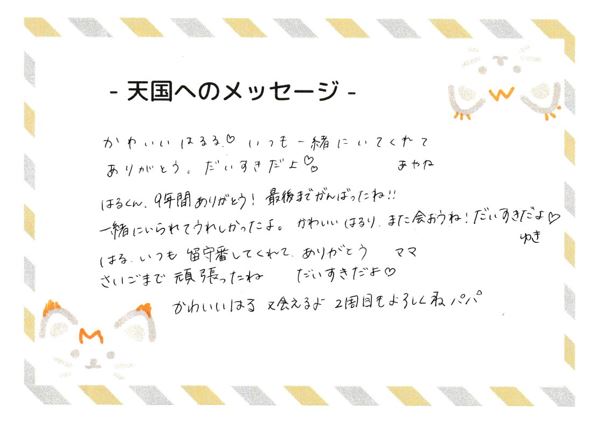 - 天国へのメッセージ -
かわいいはるる♡ いつも一緒にいてくれて
ありがとう。だいすきだよ♡。 あやね
はるくん、9年間ありがとう！最後までがんばったね!!
一緒にいられてうれしかったよ。かわいいはるり、また会おうね！だいすきだよ♡
ゆき
はる、いつも 留守番してくれて、ありがとう ママ
さいごまで 頑張ったね だいすきだよ♡
かわいいはる 又会えるよ 2周目もよろしくね パパ